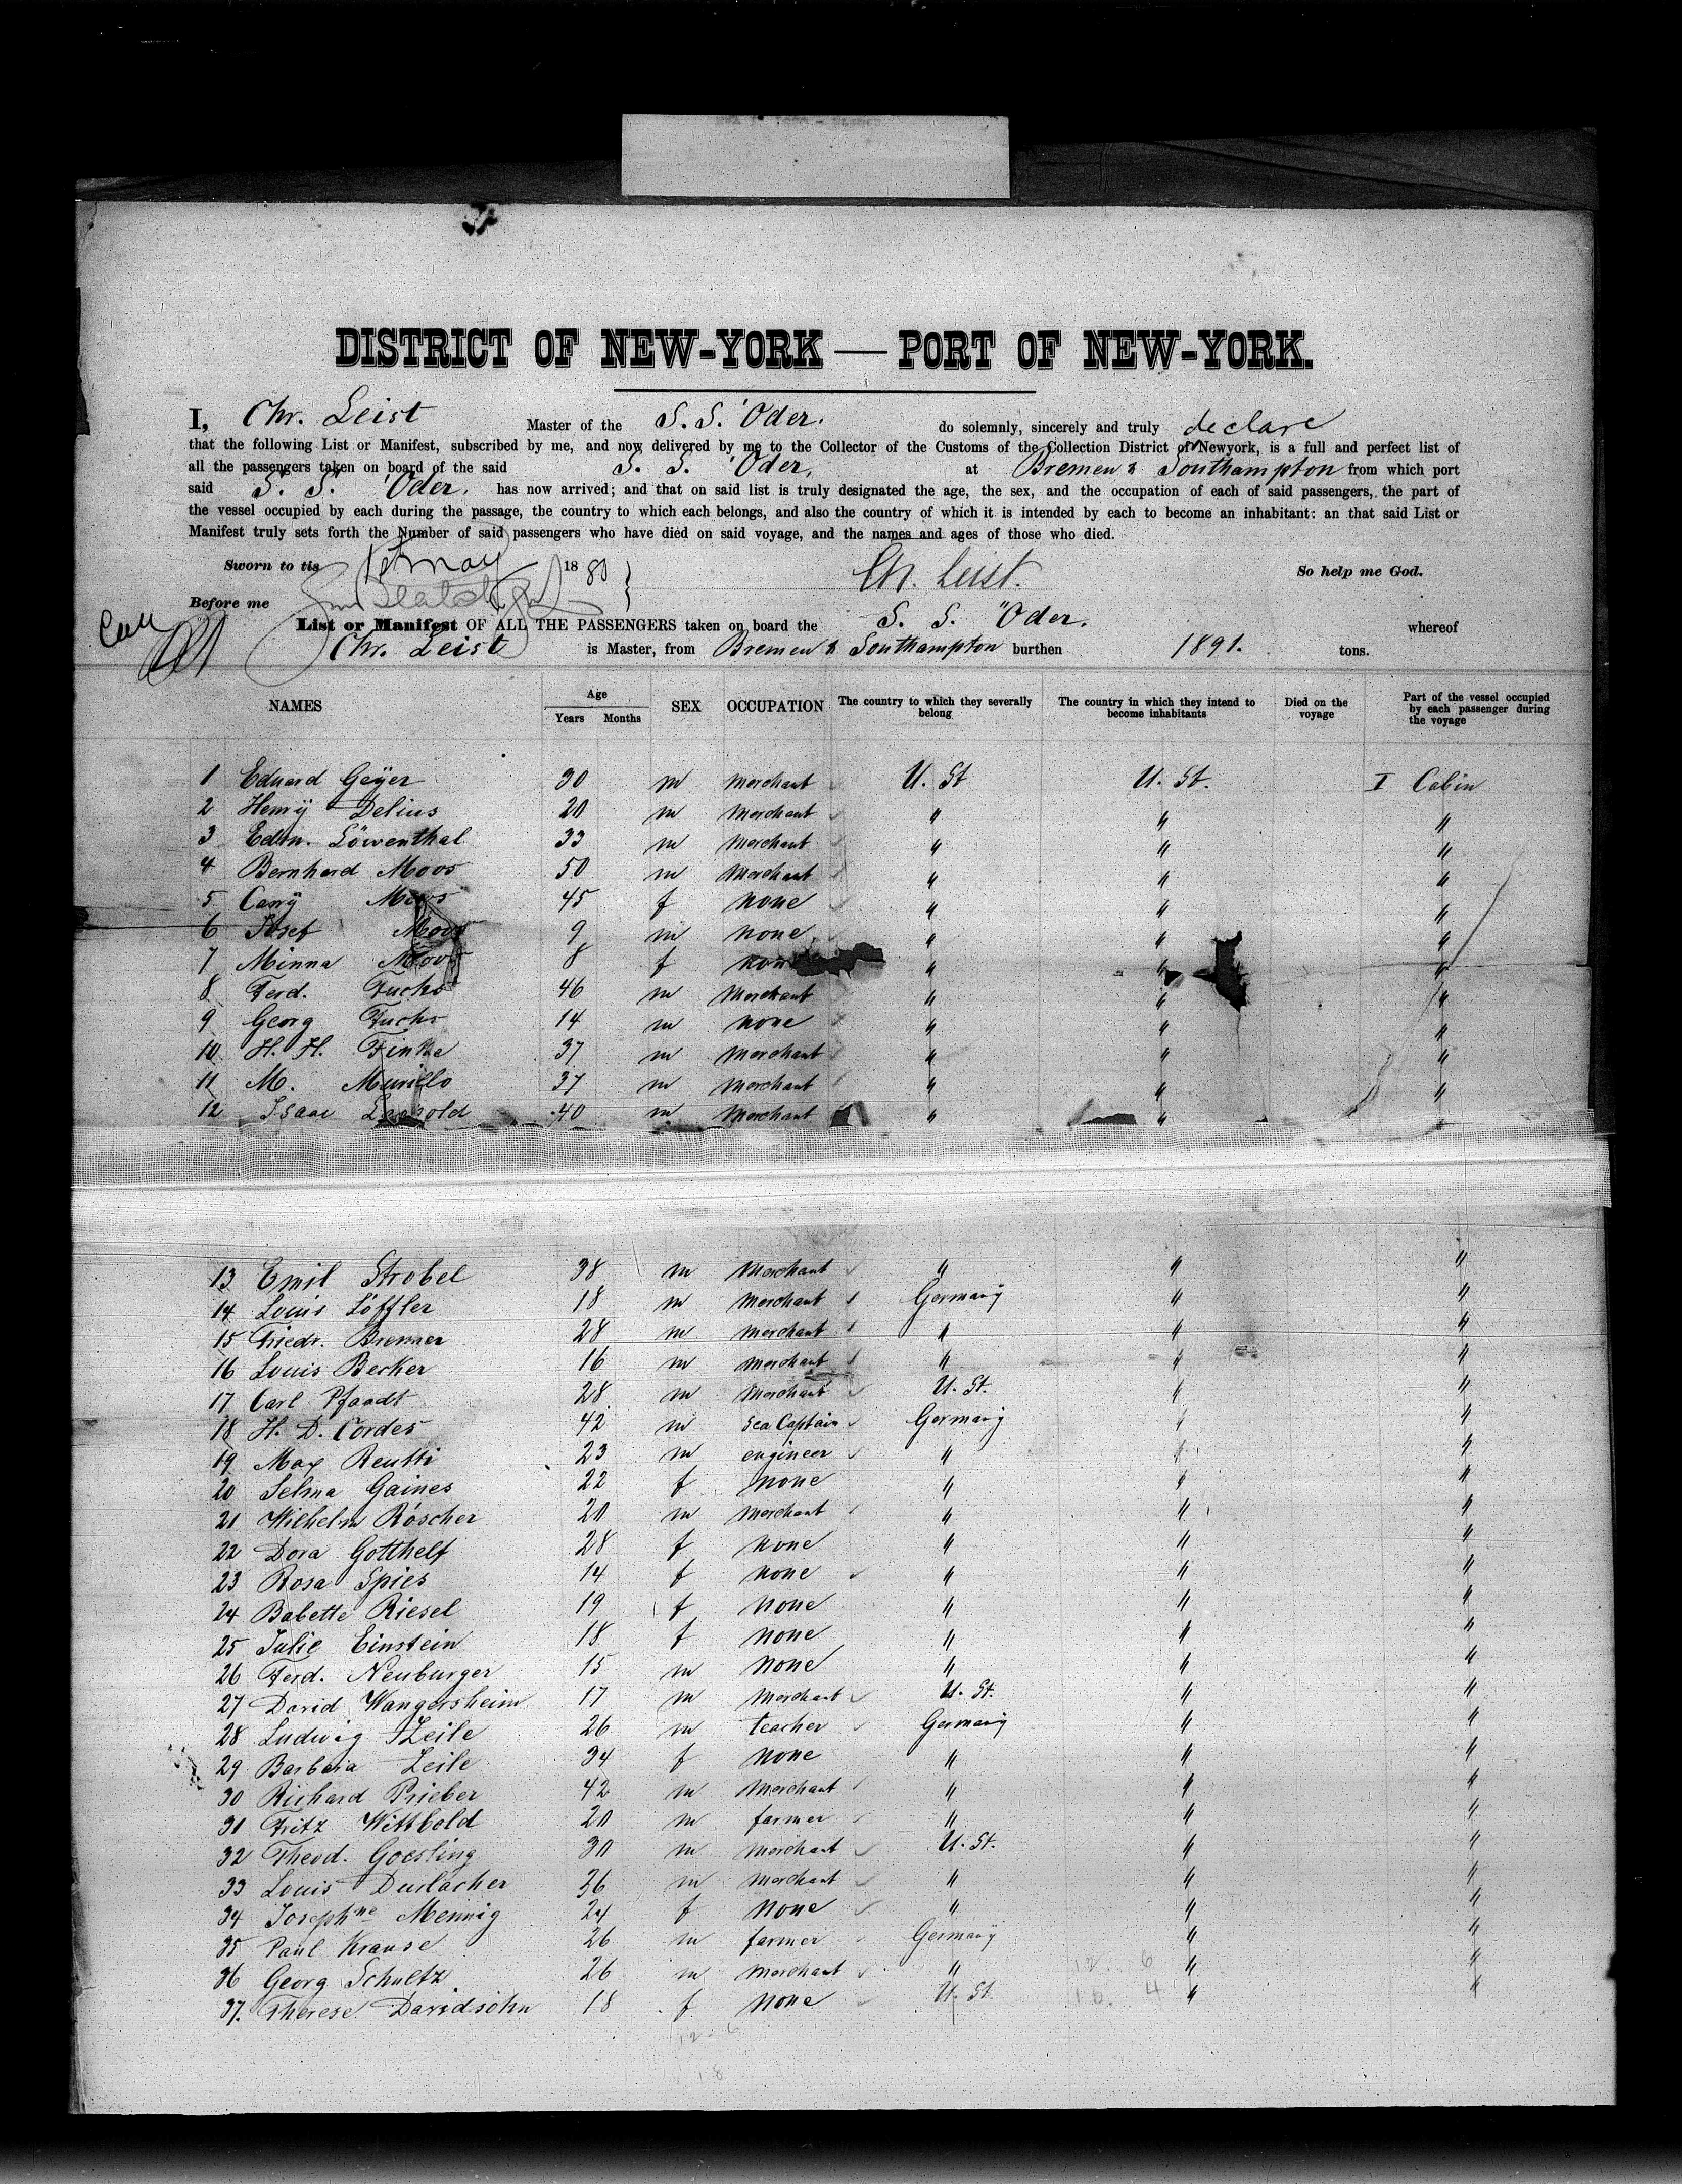 DISTRICT OF NEW-YORK — PORT OF NEW-YORK.
I, Chr. Leist Master of the S.S. "Oder. do solemnly, sincerely and truly declare
that the following List or Manifest, subscribed by me, and now delivered by me to the Collector of the Customs of the Collection District of Newyork, is a full and perfect list of
all the passengers taken on board of the said S. S. "Oder, at Bremen & Southampton from which port
said S. S. "Oder. has now arrived; and that on said list is truly designated the age, the sex, and the occupation of each of said passengers, the part of
the vessel occupied by each during the passage, the country to which each belongs, and also the country of which it is intended by each to become an inhabitant: an that said List or
Manifest truly sets forth the Number of said passengers who have died on said voyage, and the names and ages of those who died.
Sworn to tis 1st May 1880 Ch. Leist. So help me God.
Before me
List or Manifest OF ALL THE PASSENGERS taken on board the S. S. "Oder. whereof
Chr. Leist is Master, from Bremen & Southampton burthen 1891. tons.
NAMES Age Years Months SEX OCCUPATION The country to which they severally belong The country in which they intend to become inhabitants Died on the voyage Part of the vessel occupied by each passenger during the voyage
1 Eduard Geÿer 30 m Merchant U. St U. St. I Cabin
2 Henrÿ Delius 20 m Merchant " " "
3 Edm. Löwenthal 33 m Merchant " " "
4 Bernhard Moos 50 m Merchant " " "
5 Carrÿ Moos 45 f none " " "
6 Josef Moos 9 m none " " "
7 Minna Moos 8 f none " " "
8 Ferd. Fuchs 46 m Merchant " " "
9 Georg Fuchs 14 m none " " "
10 H. H. Finke 37 m Merchant " " "
11 M. Murillo 37 m Merchant " " "
12 Isaac Leopold 40 m Merchant " "
13 Emil Strobel 38 m Merchant " " "
14 Louis Löffler 18 m Merchant Germanÿ " "
15 Friedr. Brenner 28 m Merchant " " "
16 Louis Becker 16 m Merchant " " "
17 Carl Pfaadt 28 m Merchant U. St. " "
18 H. D. Cordes 42 m Sea Captain Germanÿ " "
19 Max Reutti 23 m engineer " " "
20 Selma Gaines 22 f none " " "
21 Wilhelm Röscher 20 m Merchant " " "
22 Dora Gotthelf 28 f none " " "
23 Rosa Spies 14 f none " " "
24 Babette Riesel 19 f none " " "
25 Julie Einstein 18 f none " " "
26 Ferd. Neuburger 15 m none " " "
27 David Wangersheim 17 m Merchant U. St. " "
28 Ludwig Zeile 26 m teacher Germanÿ " "
29 Barbara Zeile 34 f none " " "
30 Richard Prieber 42 m Merchant " " "
31 Fritz Wittbold 20 m farmer " " "
32 Theod. Goesling 30 m Merchant U. St. " "
33 Louis Durlacher 36 m Merchant " " "
34 Joseph^ne Mennig 24 f none " " "
35 Paul Krause 26 m farmer Germanÿ " "
36 Georg Schultz 26 m Merchant " 12. 6 " "
37. Therese Davidsohn 18 f none U. St. 16. 4 " "
12 - 6
18